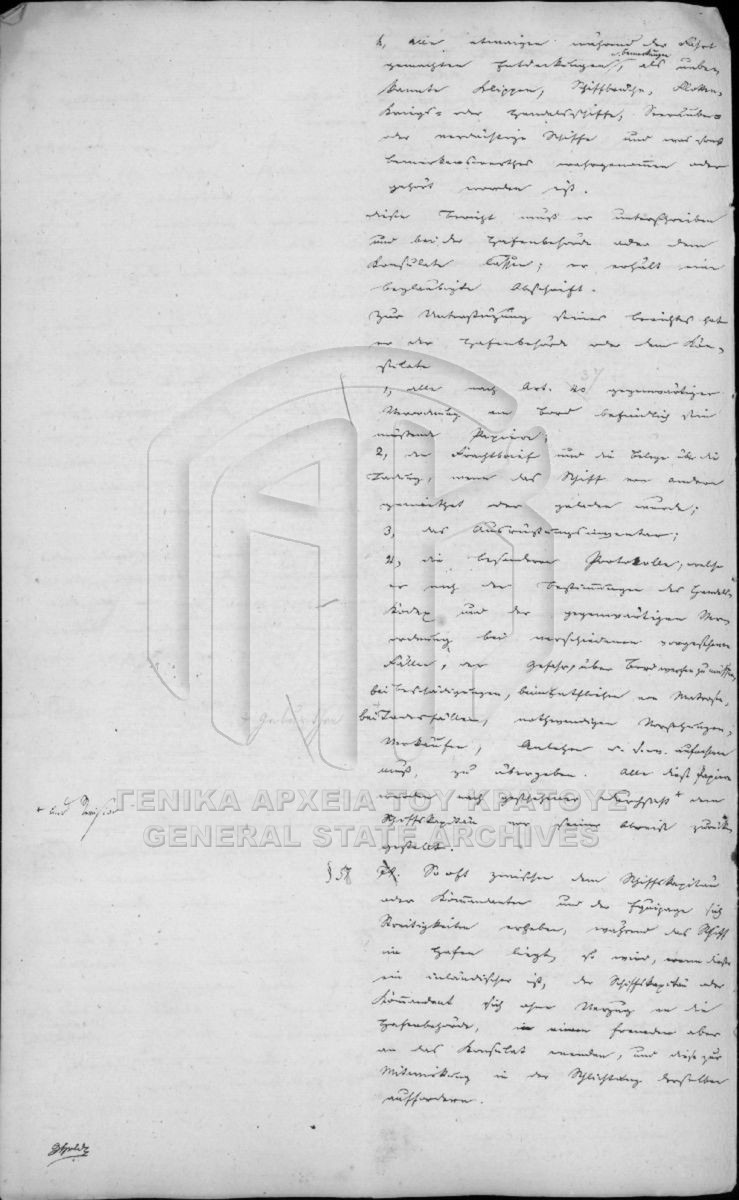 h, alle etwaigen während der Fahrt
gemachten Entdeckungen, u. Bemerkungen als unbe-
kannte Klippen, Schiffbrüche, Flotten,
Kriegs- oder Handelsschiffe, Seeräuber
oder verdächtige Schiffe und was sonst
bemerkenswerthes wahrgenommen oder
gehört worden ist.
diesen Bericht muß er unterschreiben
und bei der Hafenbehörde oder dem
Konsulate lassen; er erhält eine
beglaubigte Abschrift.
Zur Unterstüzung seines Berichtes hat
er der Hafenbehörde oder dem Kon-
sulate
1, alle nach Art. 40 37 gegenwärtiger
Verordnung an Bord befindlich sein
müssende Papiere;
2, den Frachtbrief und die Belege über die
Ladung, wenn das Schiff von andern
gemiethet oder geladen wurde;
3, das Ausrüstungsinventar;
4, die besondern Protokolle, welche
er nach den Bestimmungen des Handels-
Kodex und der gegenwärtigen Ver-
ordnung bei verschiedenen vorgesehenen
Fällen, der Gefahr, über Bord werfen zu müssen,
bei Beschädigungen, beim Entfliehen von Matrosen,
bei Todesfällen, nothwendigen Vorkehrungen,
Verkäufen, Anlehen u. s. w. aufnehmen
muß, zu übergeben. Alle diese Papiere
werden nach geschehener Durchsicht + dem
+ und Revision
Schiffskapitän vor seiner Abreise zurück-
gestellt.
§ 58 So oft zwischen dem Schiffskapitän
oder Kommandanten und der Equipage sich
Streitigkeiten erheben, während das Schiff
im Hafen liegt, so wird, wenn dieser
ein inländischer ist, der Schiffskapitän oder
Kommandant sich ohne Verzug an die
Hafenbehörde, in einem fremden aber
an das Konsulat wenden, und diese zur
Mitwirkung in der Schlichtung derselben
auffordern.
ΓΕΝΙΚΑ ΑΡΧΕΙΑ ΤΟΥ ΚΡΑΤΟΥΣ
GENERAL STATE ARCHIVES